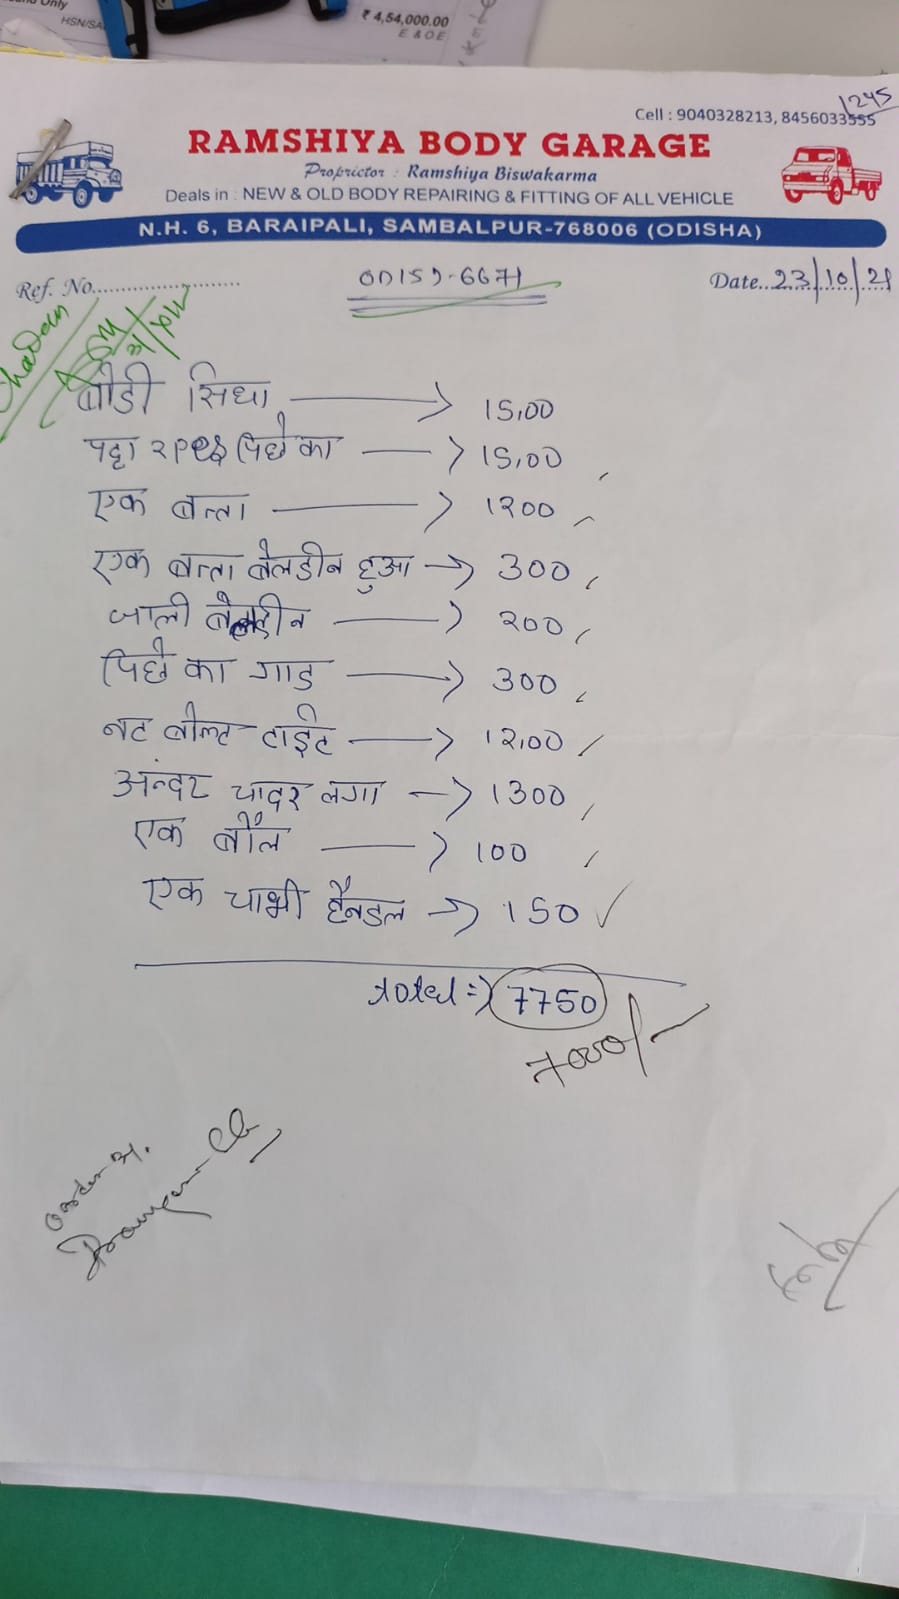 ₹ 4,54,000.00
E & O E
HSN/SA
1245
Cell : 9040328213, 8456033555
RAMSHIYA BODY GARAGE
Proprietor : Ramshiya Biswakarma
Deals in : NEW & OLD BODY REPAIRING & FITTING OF ALL VEHICLE
N.H. 6, BARAIPALI, SAMBALPUR-768006 (ODISHA)
Ref. No..........................
Date..23/10/21
बोडी सिधा → 15,00
पट्टा २Pes पिछे का → 15,00
एक बत्ता → 1200
एक बत्ता बेलडीन हुआ → 300
जाली बेलडीन → 200
पिछे का गाड → 300
नट बोल्ट टाईट → 12,00
अन्दर चादर लगा → 1300
एक बौल → 100
एक चाभी हैनडल → 150
total => 7750
7000/-